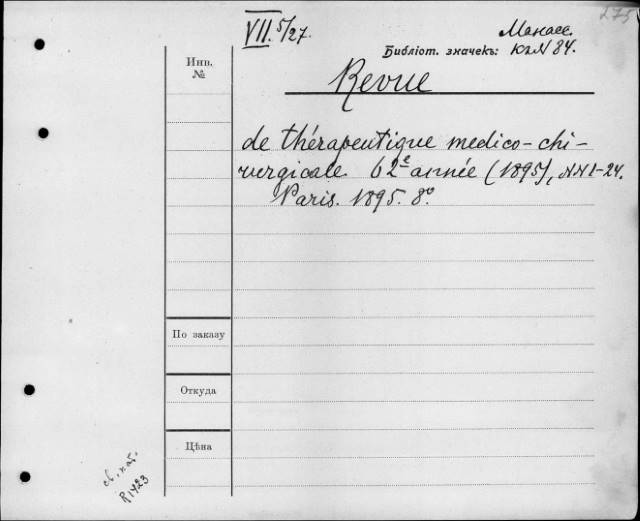 275
VII. 5/27.
Манасс.
Библіот. значекъ: КгN 84.
Инв.
№
Revue
de thérapeutique medico-chi-
rurgicale 62e année (1895), NN 1-24.
Paris. 1895. 8º.
По заказу
Откуда
Цѣна
св. кат.
R1423